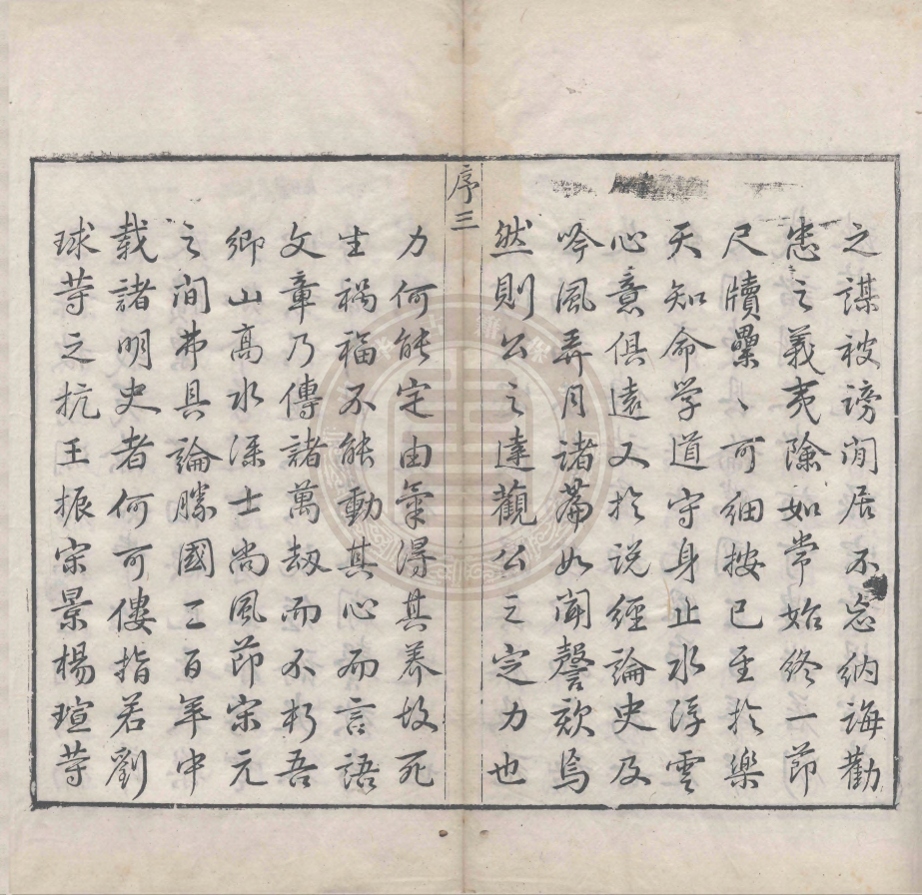 之謀被謗閒居不忘納誨勸
忠之義夷險如常始終一節
尺牘纍〻可細按已至於樂
天知命学道守身止水浮雲
心意俱遠又於説經論史及
吟風弄月諸篇如聞謦欬焉
然則公之達觀公之定力也
序三
力何能定由氣得其养故死
生禍福不能動其心而言語
文章乃傳諸萬劫而不朽吾
鄉山高水深士尚風節宋元
之間弗具論勝國三百年中
載諸明史者何可僂指若劉
球䓁之抗王振宗景楊瑄䓁